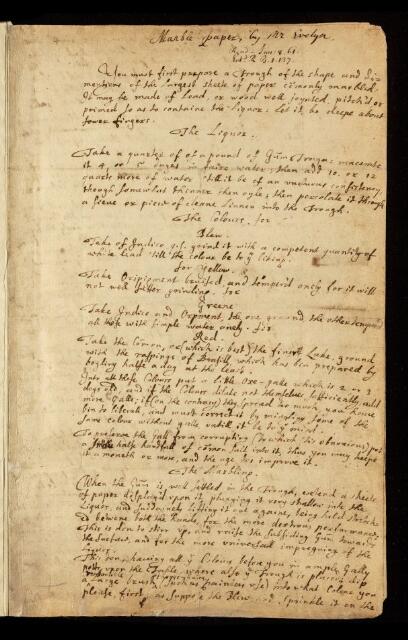 Marble paper, by Mr Evelyn
Read Jan: 8. 61.
You must first prepare a trough of the shape and di-
mentions of the largest sheete of paper comonly marbled.
It may be made of lead, or wood well joynted, pitch'd or
primed so as to containe the liquor. let it be deepe about
fower fingers.
The Liquor.
Take a quarter of a pound of Gum Dragon: macerate
it 4, or 5 in faire water; then add 10. or 12
quarts more of water till it be of an consistency,
though somwhat thicker then oyle; then percolate it through
a sieve or piece of cleane linnen into the trough.
The Colours. for
Blew.
Take of Indico grind it with a competent quantity of
white lead till the colour be to yr liking.
for Yellow.
Take Oripiment bruised and temper'd only for it will
not well suffer grinding. for
Greene
Take Indico and Orpment, the one ground the other temper'd
all these with simple water onely. for
Red.
Take the Comon, or (which is best) the finest Lake, ground
with the raspings of Brasill which has ben prepared by
boyling halfe a day at the least.
Into all these Colours put a little Oxe-galle which is 2 or 3
days old, and if the Colours dilate not themselves sufficiently, add
more Galle; if (on the contrary) they spread too much, you have
bin to liberal, and must correct it by mixing some of the
same colour without galle untill it be to yr mind.
To preserve the gall from corruption (to which tis obnoxious) put
a halfe handfull of comon salt into it, thus you may keepe
it a moneth or more, and the age improve it.
The Marbling.
When the Gum is well settled in the trough, extend a sheete
of paper display'd upon it, plunging it very shallow into the
liquor, and suddainely lifting it out againe, being held
betweene both the hands, for the more dextrous performance.
This is don to stirr up, and raise the subsiding Gum towards
the surface, and for the more universal impregning of the
liquor.
This don, having all yr Colours before you in ample Gally
potts upon the Table, where also yr trough is placed; dip
a large brush (such as painters use) into what Colour you
please, first, as suppose the Blew and sprinkle it on the